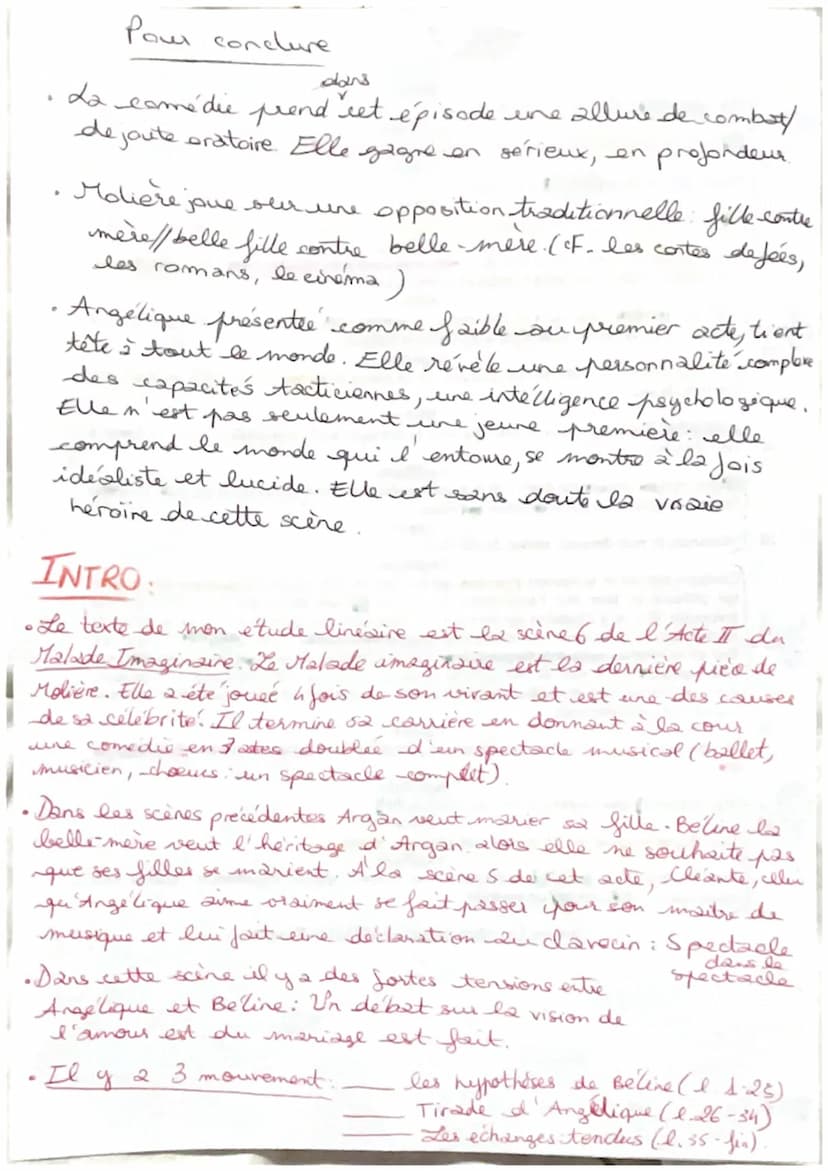 Pour conclure
dans
• La comédie prend cet épisode une allure de combat/
de joute oratoire. Elle gagne en sérieux, en profondeur.
• Molière joue sur une opposition traditionnelle : fille contre
mère // belle fille contre belle-mère. (cF. les contes de fées,
les romans, le cinéma)
• Angélique présentée comme faible au premier acte, tient
tête à tout le monde. Elle révèle une personnalité complexe
des capacités tacticiennes, une intélligence psychologique.
Elle n'est pas seulement une jeune première : elle
comprend le monde qui l'entoure, se montre à la fois
idéaliste et lucide. Elle est sans doute la vraie
héroïne de cette scène.
INTRO :
• Le texte de mon étude linéaire est la scène 6 de l'Acte II du
Malade Imaginaire. Le Malade imaginaire est la dernière pièce de
Molière. Elle a été jouée 4 fois de son vivant et est une des causes
de sa célébrité. Il termine sa carrière en donnant à la cour
une comédie en 3 actes doublée d'un spectacle musical (ballet,
musicien, chœurs : un spectacle complet).
• Dans les scènes précédentes Argan veut marier sa fille. Béline la
belle-mère veut l'héritage d'Argan alors elle ne souhaite pas
que ses filles se marient. À la scène 5 de cet acte, Cléante, celui
qu'Angélique aime vraiment se fait passer pour son maitre de
musique et lui fait une déclaration au clavecin : Spectacle
dans le
spectacle
• Dans cette scène il y a des fortes tensions entre
Angélique et Béline : Un débat sur la vision de
l'amour est du mariage est fait.
• Il y a 3 mouvement : — les hypothèses de Béline (l. 1-25)
— Tirade d'Angélique (l. 26-34)
— Les échanges tendus (l. 35 - fin).